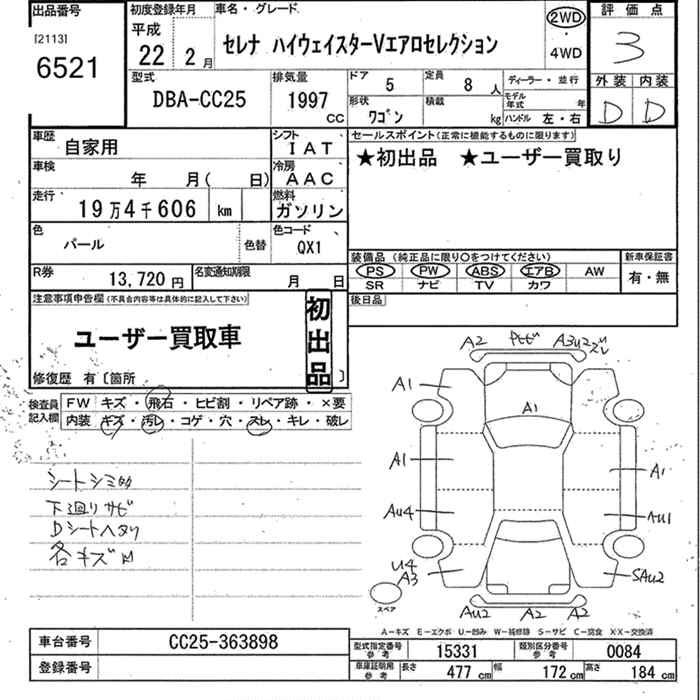 出品番号
[2113]
6521
初度登録年月
平成
22 2月
車名・グレード
セレナ ハイウェイスターVエアロセレクション
2WD
・
4WD
評価点
3
外装 内装
D D
型式
DBA-CC25
排気量
1997
CC
ドア 5
定員 8 人
形状 ワゴン
積載 kg
ディーラー・並行
モデル年式 年
ハンドル 左・右
車歴 自家用
シフト IAT
車検 年 月( 日)
冷房 AAC
走行 19万4千606 km
燃料 ガソリン
色 パール
色替
色コード QX1
R券 13,720円
名変通知期限 月 日
セールスポイント(正常に機能するものに限ります)
★初出品 ★ユーザー買取り
装備品(純正品に限り○をつけてください)
PS PW ABS エアB AW
SR ナビ TV カワ
新車保証書
有・無
後日品
注意事項申告欄(不具合内容等は具体的に記入して下さい)
ユーザー買取車
初出品
修復歴 有〔箇所 〕
検査員記入欄
FW キズ・飛石・ヒビ割・リペア跡・×要
内装 キズ・汚レ・コゲ・穴・スレ・キレ・破レ
シートシミ
下廻りサビ
Dシートヘタリ
各キズ凹
A2 A3U2
A1
A1
A1
A1
AU4
AU1
U4
A3
SAU2
AU2 A2 A2
スペア
A-キズ E-エクボ U-凹み W-補修跡 S-サビ C-腐食 XX-交換済
車台番号 CC25-363898
登録番号
型式指定番号 参考 15331
類別区分番号 参考 0084
車庫証明用 参考 長さ 477cm 幅 172cm 高さ 184cm